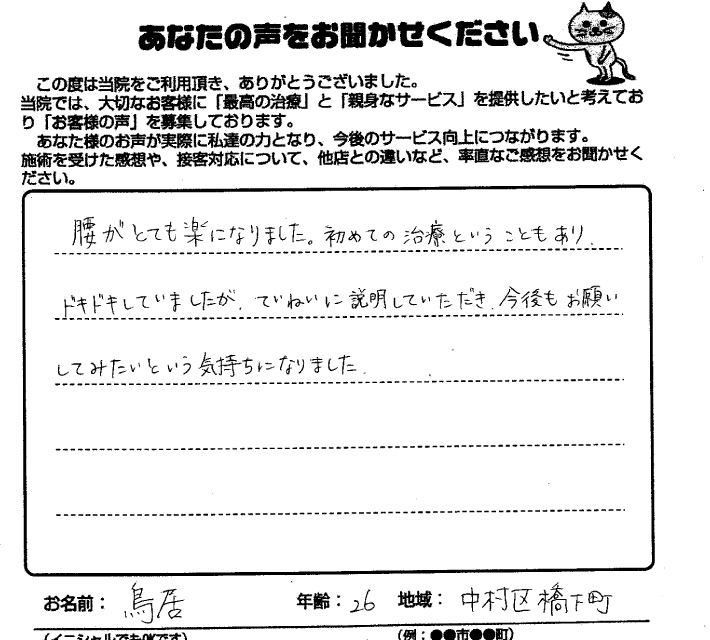 あなたの声をお聞かせください
この度は当院をご利用頂き、ありがとうございました。
当院では、大切なお客様に「最高の治療」と「親身なサービス」を提供したいと考えてお
り「お客様の声」を募集しております。
あなた様のお声が実際に私達の力となり、今後のサービス向上につながります。
施術を受けた感想や、接客対応について、他店との違いなど、率直なご感想をお聞かせく
ださい。
腰がとても楽になりました。初めての治療ということもあり、
ドキドキしていましたが、ていねいに説明していただき、今後もお願い
してみたいという気持ちになりました。
お名前：鳥居 年齢：26 地域：中村区橋下町
(イニシャルでもOKです) (例：●●市●●町)